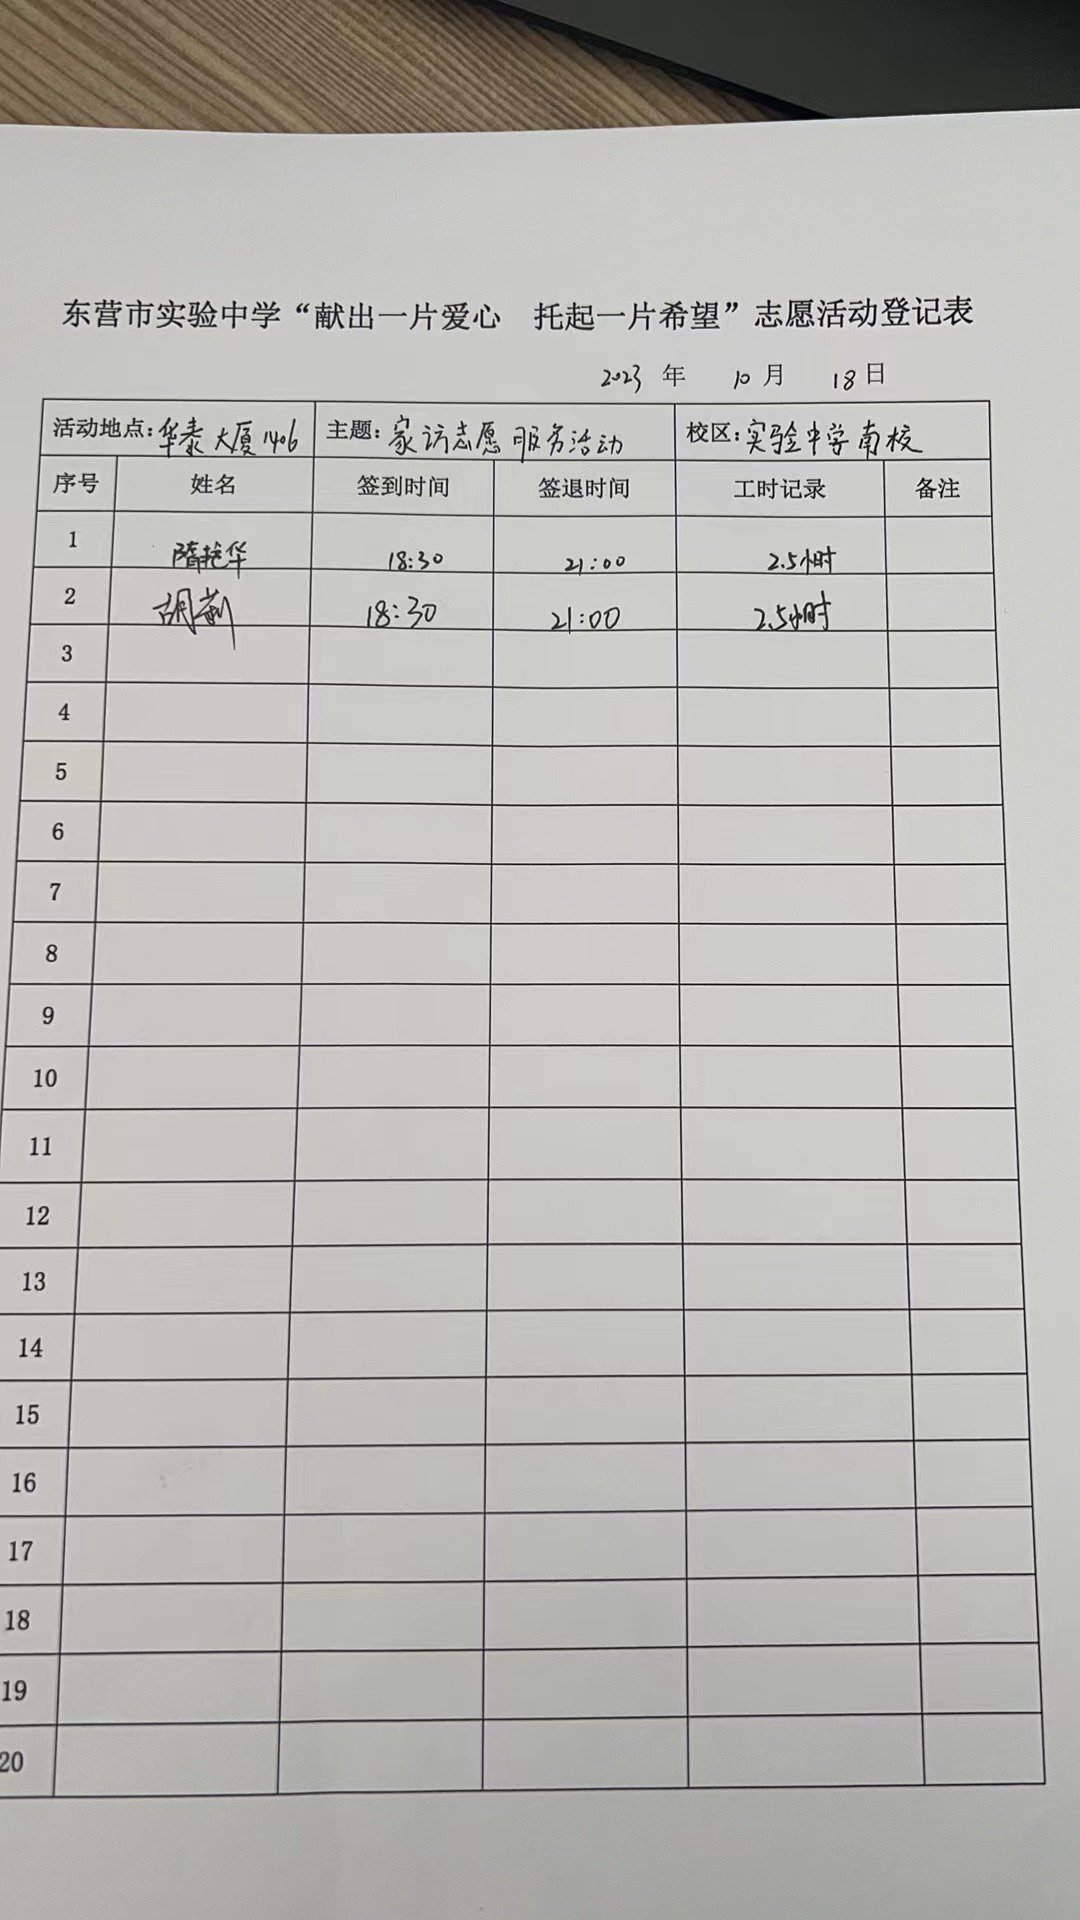 东营市实验中学“献出一片爱心 托起一片希望”志愿活动登记表
2023 年 10 月 18 日
活动地点：华泰大厦1406 主题：家访志愿服务活动 校区：实验中学南校
序号 姓名 签到时间 签退时间 工时记录 备注
1 隋艳华 18:30 21:00 2.5小时
2 胡莉 18:30 21:00 2.5小时
3
4
5
6
7
8
9
10
11
12
13
14
15
16
17
18
19
20